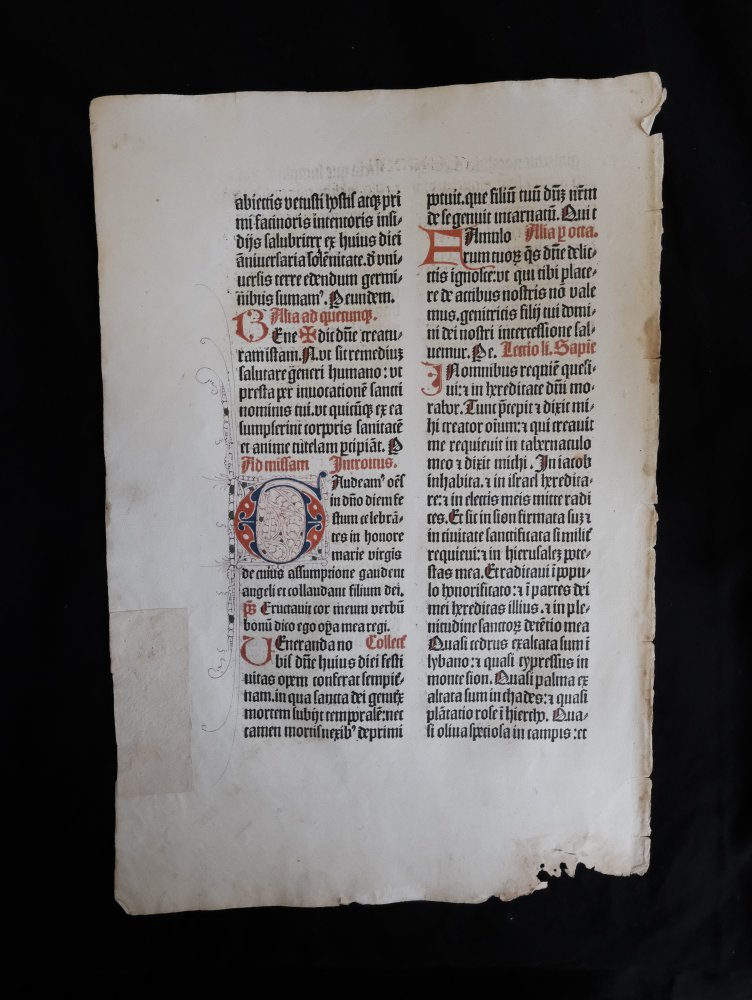 abiectis vetusti hostis atqꝫ pri
mi facinoris intentoris insi⸗
dijs salubriter ex huius diei
āniuersaria solēnitate. d̕ vni⸗
uersis terre edendum germi⸗
nibus sumamꝰ. Ꝑ eundem.
Alia ad quecunqꝫ.
BEne ✠ dic dn̄e creatu⸗
ram istam. N. vt sit remediuꝫ
salutare generi humano: vt
presta per inuocationē sancti
nominis tui. vt quicūqꝫ ex ea
sumpserint corporis sanitatē
et anime tutelam ꝑcipiāt. Ꝑ
Ad missam Introitus.
GAudeamꝰ oēs
in dn̄o diem fe
stum celebrā⸗
tes in honore
marie virgīs
de cuius assumptione gaudent
angeli et collaudant filium dei.
p̄s Eructauit cor meum verbū
bonū dico ego oꝑa mea regi.
VEneranda no Collecƭ
bis dn̄e huius diei festi
uitas opem conferat sempit̕⸗
nam. in qua sancta dei genitͥx
mortem subijt temporalē: nec
tamen mortis nexibꝰ deprimi
potuit. que filiū tuū dn̄ꝫ nr̄m
de se genuit incarnatū. Qui t
Alia ꝑ octa.
FAmulo
rum tuoꝝ q̄s dn̄e delic⸗
tis ignosce: vt qui tibi place⸗
re de actibus nostris nō vale
mus. genitricis filij tui domi⸗
ni dei nostri intercessione sal⸗
uemur. Ꝑe. Lectio li. Sapiē
IN omnibus requiē quesi⸗
ui: ⁊ in hereditate dn̄i mo⸗
rabor. Tunc p̄cepit ⁊ dixit mi⸗
hi creator oīum: ⁊ qui creauit
me requieuit in tabernaculo
meo ⁊ dixit michi. In iacob
inhabita. ⁊ in israel heredita⸗
re: ⁊ in electis meis mitte radi
ces. Et sic in sion firmata suꝫ ⁊
in ciuitate sanctificata similit̕
requieui: ⁊ in hierusaleꝫ pote⸗
stas mea. Et radicaui ī popu⸗
lo honorificato: ⁊ ī partes dei
mei hereditas illius. ⁊ in ple⸗
nitudine sanctoꝝ detētio mea
Quasi cedrus exaltata sum ī
lybano: ⁊ quasi cypressus in
monte sion. Quasi palma ex
altata sum in chades: ⁊ quasi
plātatio rose ī hiericho. Qua⸗
si oliua speciosa in campis: et